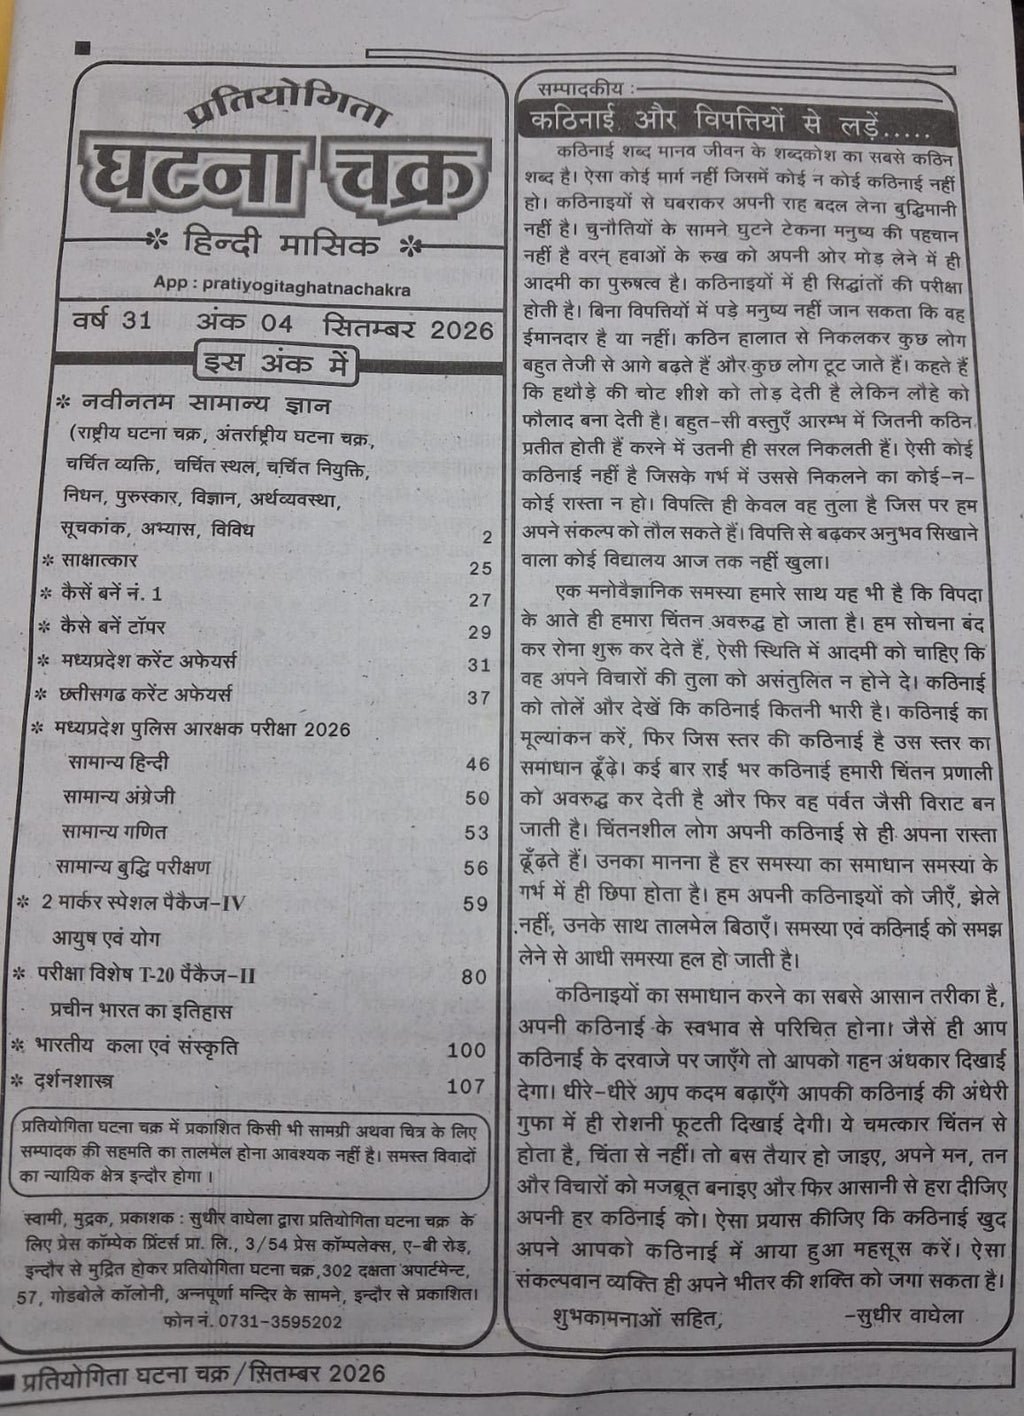 प्रतियोगिता
घटना चक्र
हिन्दी मासिक
App : pratiyogitaghatnachakra
वर्ष 31 अंक 04 सितम्बर 2026
इस अंक में
* नवीनतम सामान्य ज्ञान
(राष्ट्रीय घटना चक्र, अंतर्राष्ट्रीय घटना चक्र,
चर्चित व्यक्ति, चर्चित स्थल, चर्चित नियुक्ति,
निधन, पुरुस्कार, विज्ञान, अर्थव्यवस्था,
सूचकांक, अभ्यास, विविध 2
* साक्षात्कार 25
* कैसें बनें नं. 1 27
* कैसे बनें टॉपर 29
* मध्यप्रदेश करेंट अफेयर्स 31
* छतीसगढ करेंट अफेयर्स 37
* मध्यप्रदेश पुलिस आरक्षक परीक्षा 2026
सामान्य हिन्दी 46
सामान्य अंग्रेजी 50
सामान्य गणित 53
सामान्य बुद्धि परीक्षण 56
* 2 मार्कर स्पेशल पैकैज-IV 59
आयुष एवं योग
* परीक्षा विशेष T-20 पैकैज-II 80
प्रचीन भारत का इतिहास
* भारतीय कला एवं संस्कृति 100
* दर्शनशास्त्र 107
प्रतियोगिता घटना चक्र में प्रकाशित किसी भी सामग्री अथवा चित्र के लिए
सम्पादक की सहमति का तालमेल होना आवश्यक नहीं है। समस्त विवादों
का न्यायिक क्षेत्र इन्दौर होगा ।
स्वामी, मुद्रक, प्रकाशक : सुधीर वाघेला द्वारा प्रतियोगिता घटना चक्र के
लिए प्रेस कॉम्पेक प्रिंटर्स प्रा. लि., 3/54 प्रेस कॉम्पलेक्स, ए-बी रोड़,
इन्दौर से मुद्रित होकर प्रतियोगिता घटना चक्र,302 दक्षता अपार्टमेन्ट,
57, गोडबोले कॉलोनी, अन्नपूर्णा मन्दिर के सामने, इन्दौर से प्रकाशित।
फोन नं. 0731-3595202
सम्पादकीय :
कठिनाई और विपत्तियों से लड़ें.....
कठिनाई शब्द मानव जीवन के शब्दकोश का सबसे कठिन
शब्द है। ऐसा कोई मार्ग नहीं जिसमें कोई न कोई कठिनाई नहीं
हो। कठिनाइयों से घबराकर अपनी राह बदल लेना बुद्धिमानी
नहीं है। चुनौतियों के सामने घुटने टेकना मनुष्य की पहचान
नहीं है वरन् हवाओं के रुख को अपनी ओर मोड़ लेने में ही
आदमी का पुरुषत्व है। कठिनाइयों में ही सिद्धांतों की परीक्षा
होती है। बिना विपत्तियों में पड़े मनुष्य नहीं जान सकता कि वह
ईमानदार है या नहीं। कठिन हालात से निकलकर कुछ लोग
बहुत तेजी से आगे बढ़ते हैं और कुछ लोग टूट जाते हैं। कहते हैं
कि हथौड़े की चोट शीशे को तोड़ देती है लेकिन लौहे को
फौलाद बना देती है। बहुत-सी वस्तुएँ आरम्भ में जितनी कठिन
प्रतीत होती हैं करने में उतनी ही सरल निकलती हैं। ऐसी कोई
कठिनाई नहीं है जिसके गर्भ में उससे निकलने का कोई-न-
कोई रास्ता न हो। विपत्ति ही केवल वह तुला है जिस पर हम
अपने संकल्प को तौल सकते हैं। विपत्ति से बढ़कर अनुभव सिखाने
वाला कोई विद्यालय आज तक नहीं खुला।
एक मनोवैज्ञानिक समस्या हमारे साथ यह भी है कि विपदा
के आते ही हमारा चिंतन अवरुद्ध हो जाता है। हम सोचना बंद
कर रोना शुरू कर देते हैं, ऐसी स्थिति में आदमी को चाहिए कि
वह अपने विचारों की तुला को असंतुलित न होने दे। कठिनाई
को तोलें और देखें कि कठिनाई कितनी भारी है। कठिनाई का
मूल्यांकन करें, फिर जिस स्तर की कठिनाई है उस स्तर का
समाधान ढूँढ़े। कई बार राई भर कठिनाई हमारी चिंतन प्रणाली
को अवरुद्ध कर देती है और फिर वह पर्वत जैसी विराट बन
जाती है। चिंतनशील लोग अपनी कठिनाई से ही अपना रास्ता
ढूँढ़ते हैं। उनका मानना है हर समस्या का समाधान समस्या के
गर्भ में ही छिपा होता है। हम अपनी कठिनाइयों को जीएँ, झेले
नहीं, उनके साथ तालमेल बिठाएँ। समस्या एवं कठिनाई को समझ
लेने से आधी समस्या हल हो जाती है।
कठिनाइयों का समाधान करने का सबसे आसान तरीका है,
अपनी कठिनाई के स्वभाव से परिचित होना। जैसें ही आप
कठिनाई के दरवाजे पर जाएँगे तो आपको गहन अंधकार दिखाई
देगा। धीरे-धीरे आप कदम बढ़ाएँगे आपकी कठिनाई की अंधेरी
गुफा में ही रोशनी फूटती दिखाई देगी। ये चमत्कार चिंतन से
होता है, चिंता से नहीं। तो बस तैयार हो जाइए, अपने मन, तन
और विचारों को मजबूत बनाइए और फिर आसानी से हरा दीजिए
अपनी हर कठिनाई को। ऐसा प्रयास कीजिए कि कठिनाई खुद
अपने आपको कठिनाई में आया हुआ महसूस करें। ऐसा
संकल्पवान व्यक्ति ही अपने भीतर की शक्ति को जगा सकता है।
शुभकामनाओं सहित, -सुधीर वाघेला
प्रतियोगिता घटना चक्र/सितम्बर 2026